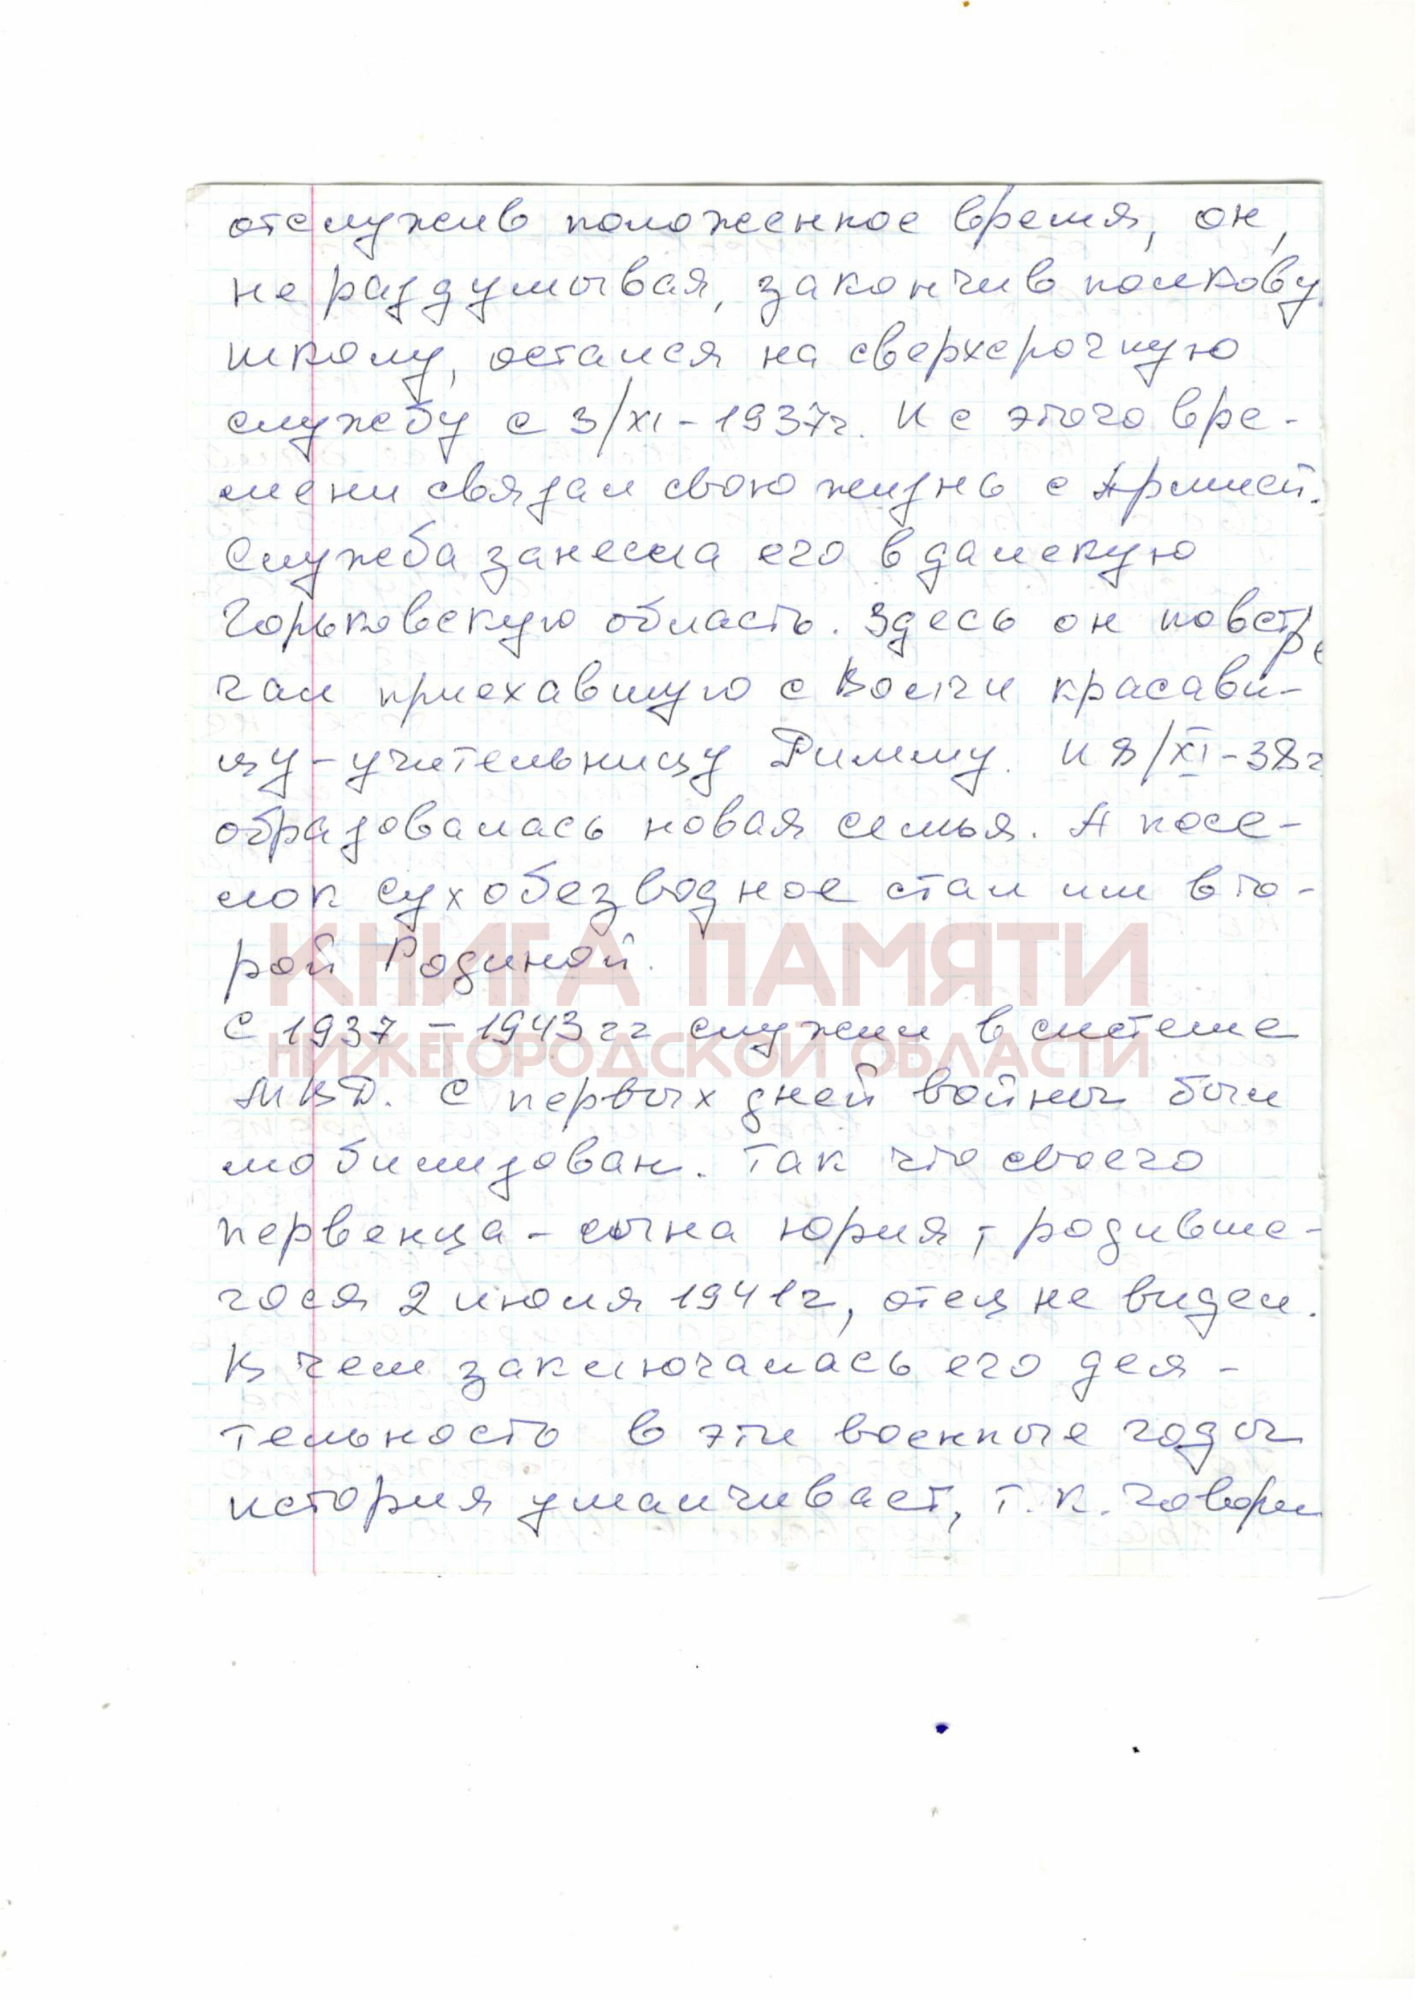 отслужив положенное время, он,
не раздумывая, закончив полкову
школу, остался на сверхсрочную
службу с 3/XI-1937г. И с этого вре-
мени связал свою жизнь с Армией.
Служба занесла его в далекую
Горьковскую область. Здесь он повстре
чал приехавшую с Волги красави-
цу-учительницу Римму. И 8/XI-38г
образовалась новая семья. А посе-
лок Сухобезводное стал им вто-
рой Родиной.
КНИГА ПАМЯТИ
С 1937-1943гг служил в системе
НИЖЕГОРОДСКОЙ ОБЛАСТИ
МВД. С первых дней войны был
мобилизован. Так что своего
первенца-сына Юрия, родивше-
гося 2 июля 1941г, отец не видел.
В чем заключалась его дея-
тельность в эти военные годы
история умалчивает, т.к. говори